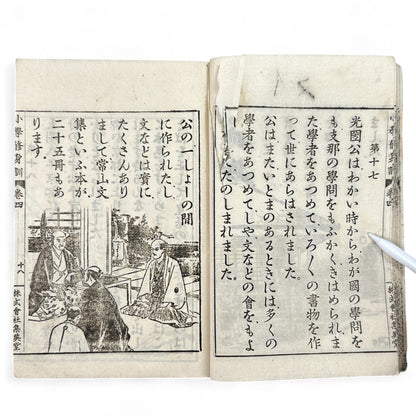 第十七
光圀公はわかい時からわが國の學問を
も支那の學問をもふかくきはめられま
た學者をあつめていろ〳〵の書物を作
つて世にあらはされました。
公はまたいとまのあるときには多くの
學者をあつめてしや文などの會をもよ
たのしまれました。
公の一しよーの間
に作られたし
文などは實に
たくさんあり
まして常山文
集といふ本が
二十五冊もあ
ります。
小學修身訓 卷四
十八
株式會社集英堂